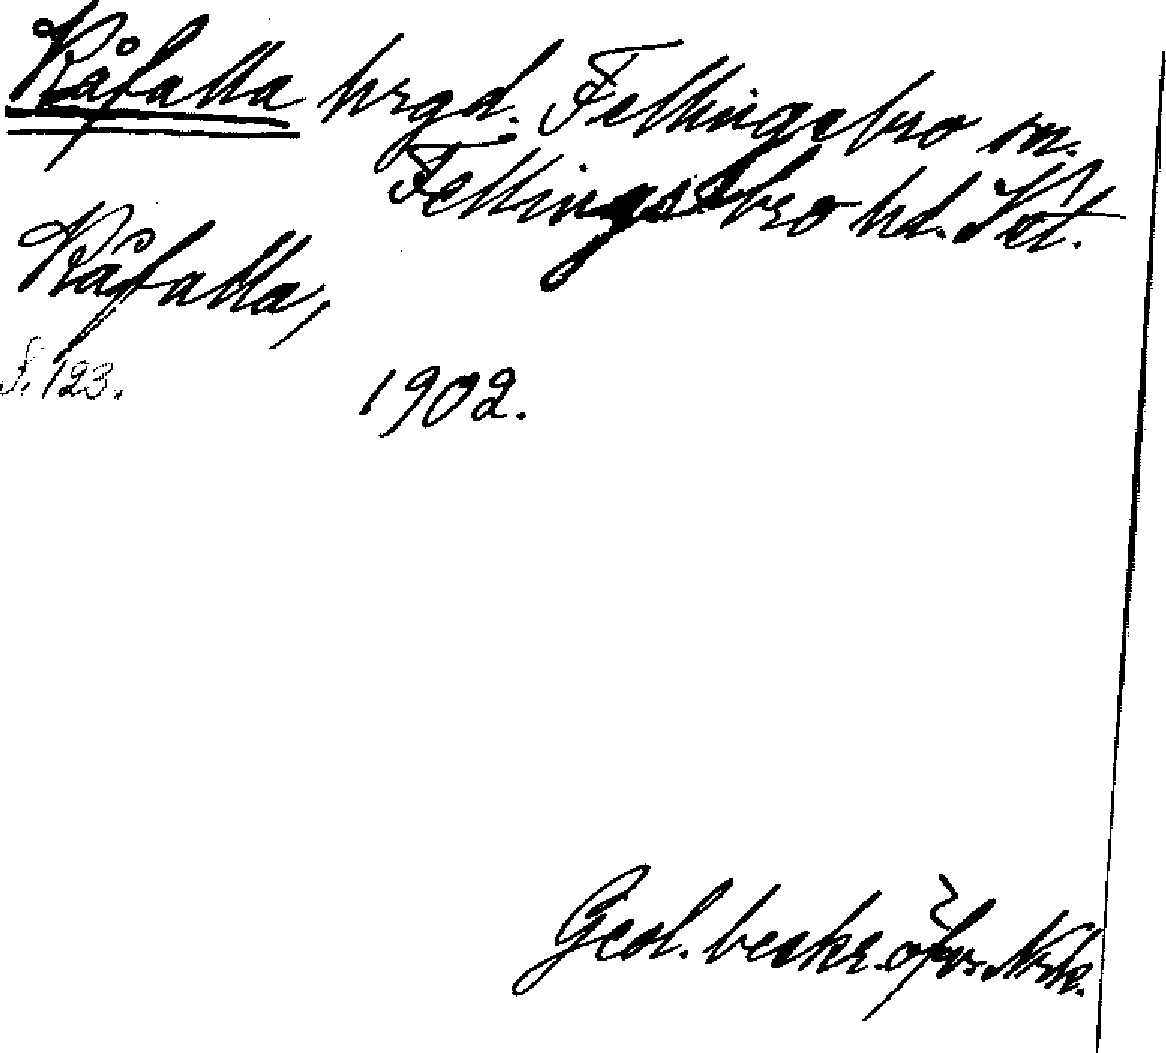 Kåfalla hrgd. Fellingsbro sn.
Fellingsbro hd. Vst.
Kåfalla,
S. 123.
1902.
Geol. beskr. öfver Nrk.